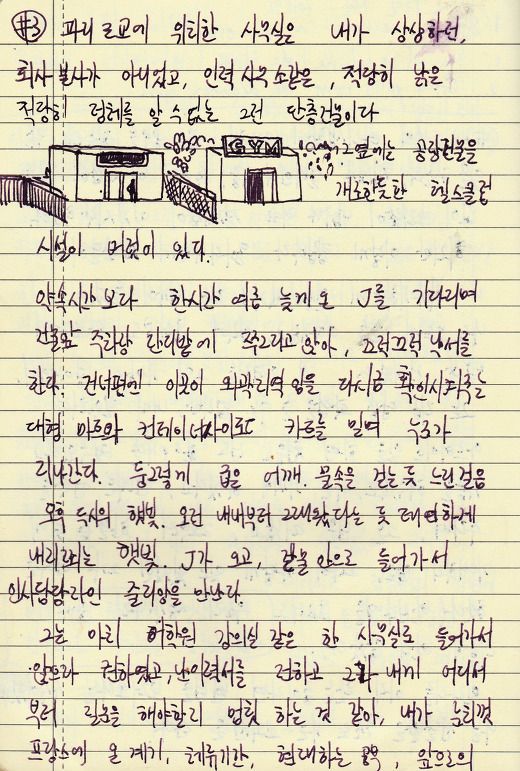 #3 파리 로교에 위치한 사무실은 내가 상상하던,
회사 본사가 아니었고, 인력사무소같은, 적당히 낡은
적당히 정체를 알 수 없는 그런 단층건물이다
GYM
그 옆에는 공장건물을
개조한듯한 헬스클럽
시설이 버젓이 있다.
약속시간보다 한시간 여름 늦게 온 J를 기다리며
건물앞 주차장 잔디밭에 쭈그리고 앉아, 끄적끄적 낙서를
한다. 건너편엔 이곳이 외곽지역임을 다시금 확인시켜주는
대형 마트와 컨테이너사이로 카트를 밀며 누군가
지나간다. 둥그렇게 굽은 어깨. 물속을 걷는듯 느린 걸음
오후 두시의 햇빛. 오전 내내부터 그래왔다는 듯 태연하게
내리쬐는 햇빛. J가 오고, 건물 안으로 들어가서
인사담당자인 줄리앙을 만난다.
그는 마치 어학원 강의실 같은 한 사무실로 들어가서
앉으라 권하였고, 난 이력서를 전하고 그가 내게 어디서
부터 질문을 해야할지 멈칫 하는 것 같아, 내가 눈치껏
프랑스에 온 계기, 체류기간, 현재하는 공부, 앞으로의